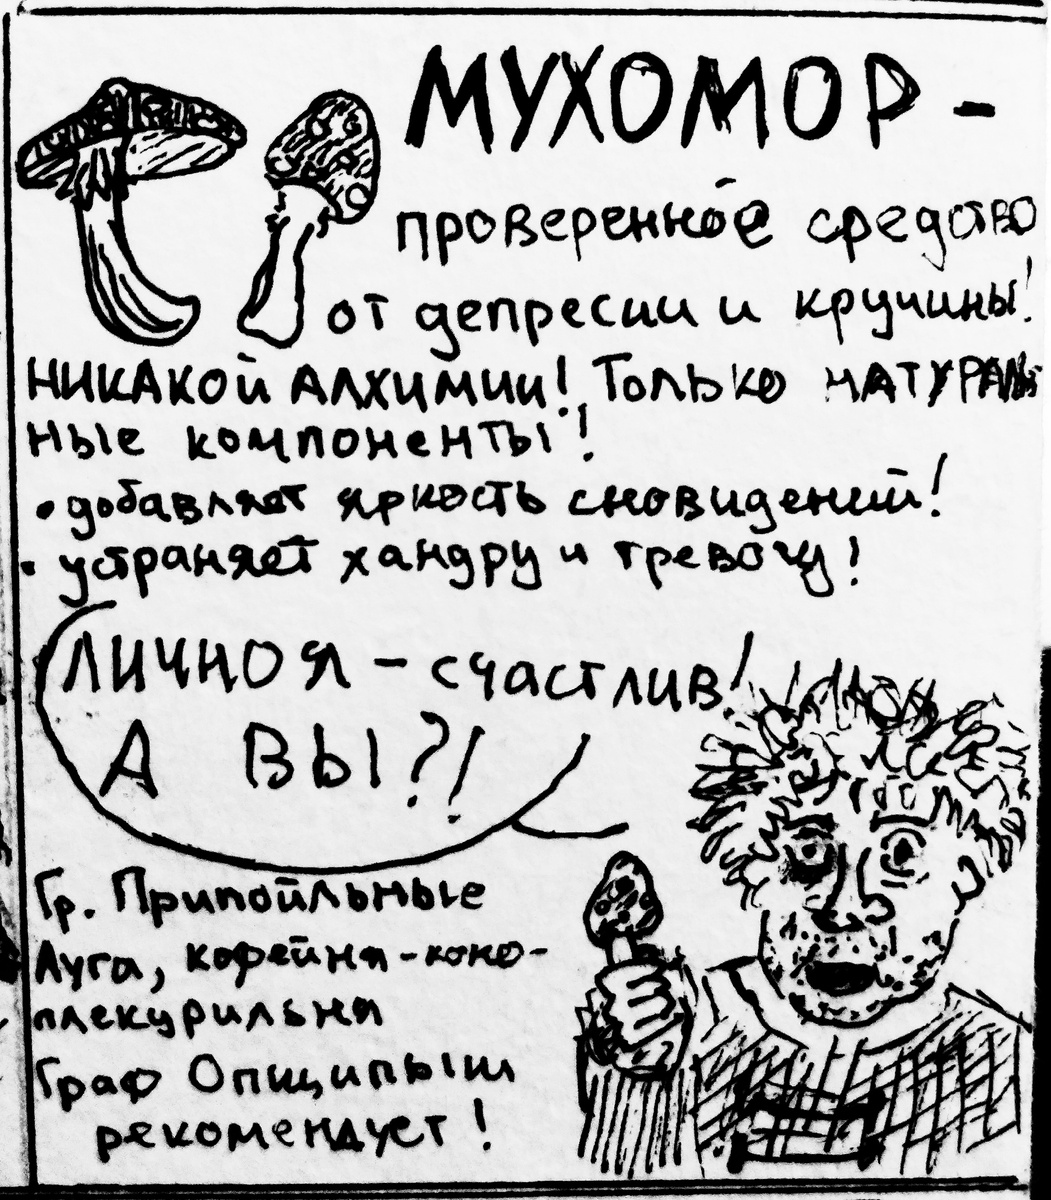 МУХОМОР -
проверенное средство
от депресии и кручины!
НИКАКОЙ АЛХИМИИ! Только НАТУРАЛЬ
ные компоненты!
• добавляет яркость сновидений!
• устраняет хандру и тревогу!
ЛИЧНО Я - счастлив!
А ВЫ?!
Гр. Припойльные
Луга, кофейня-коко-
плекурильня
Граф Опщипыш
рекомендует!